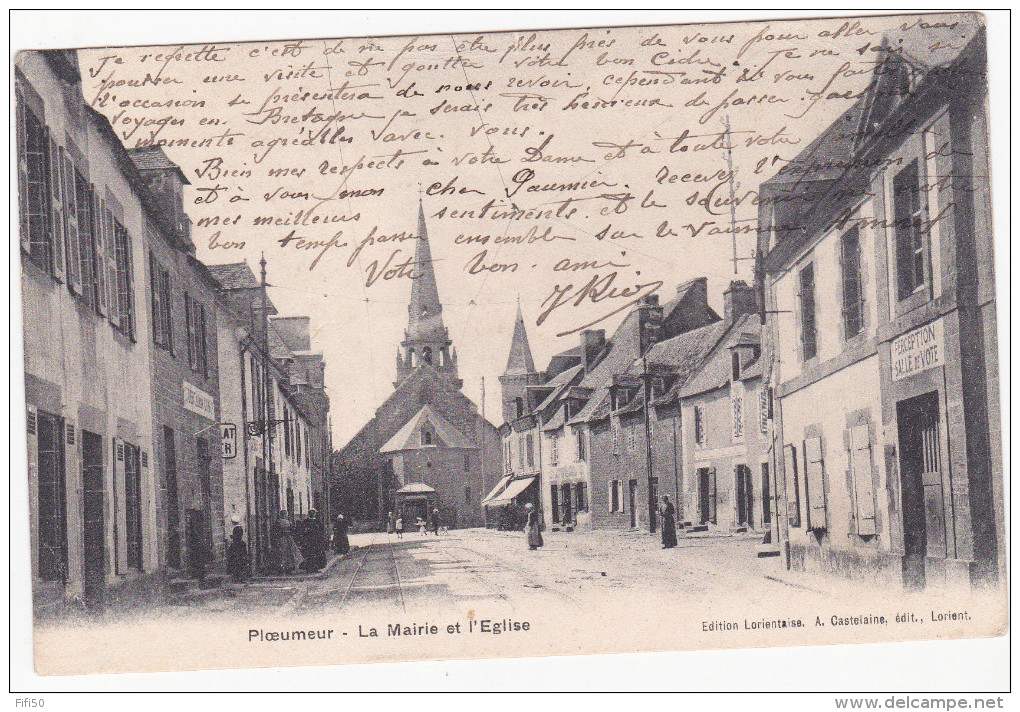 Je regrette c'est de ne pas être plus près de vous pour aller vous
pousser une visite et goutter votre bon Cidre. Je ne sais si
l'occasion se présentera de nous revoir, cependant si vous faites
voyages en Bretagne je serais très heureux de passer quelques
moments agréables avec vous.
Bien mes respects à votre Dame et à toute votre
et à vous mon cher Paumier. Recevez l'expression de
mes meilleurs sentiments et le souvenir de notre
bon temps passé ensemble sur le
Votre bon ami
J Rio
PERCEPTION
SALLE DE VOTE
Plœumeur - La Mairie et l'Eglise
Edition Lorientaise. A. Castelaine, édit., Lorient.
Fifi50
www.delcampe.net